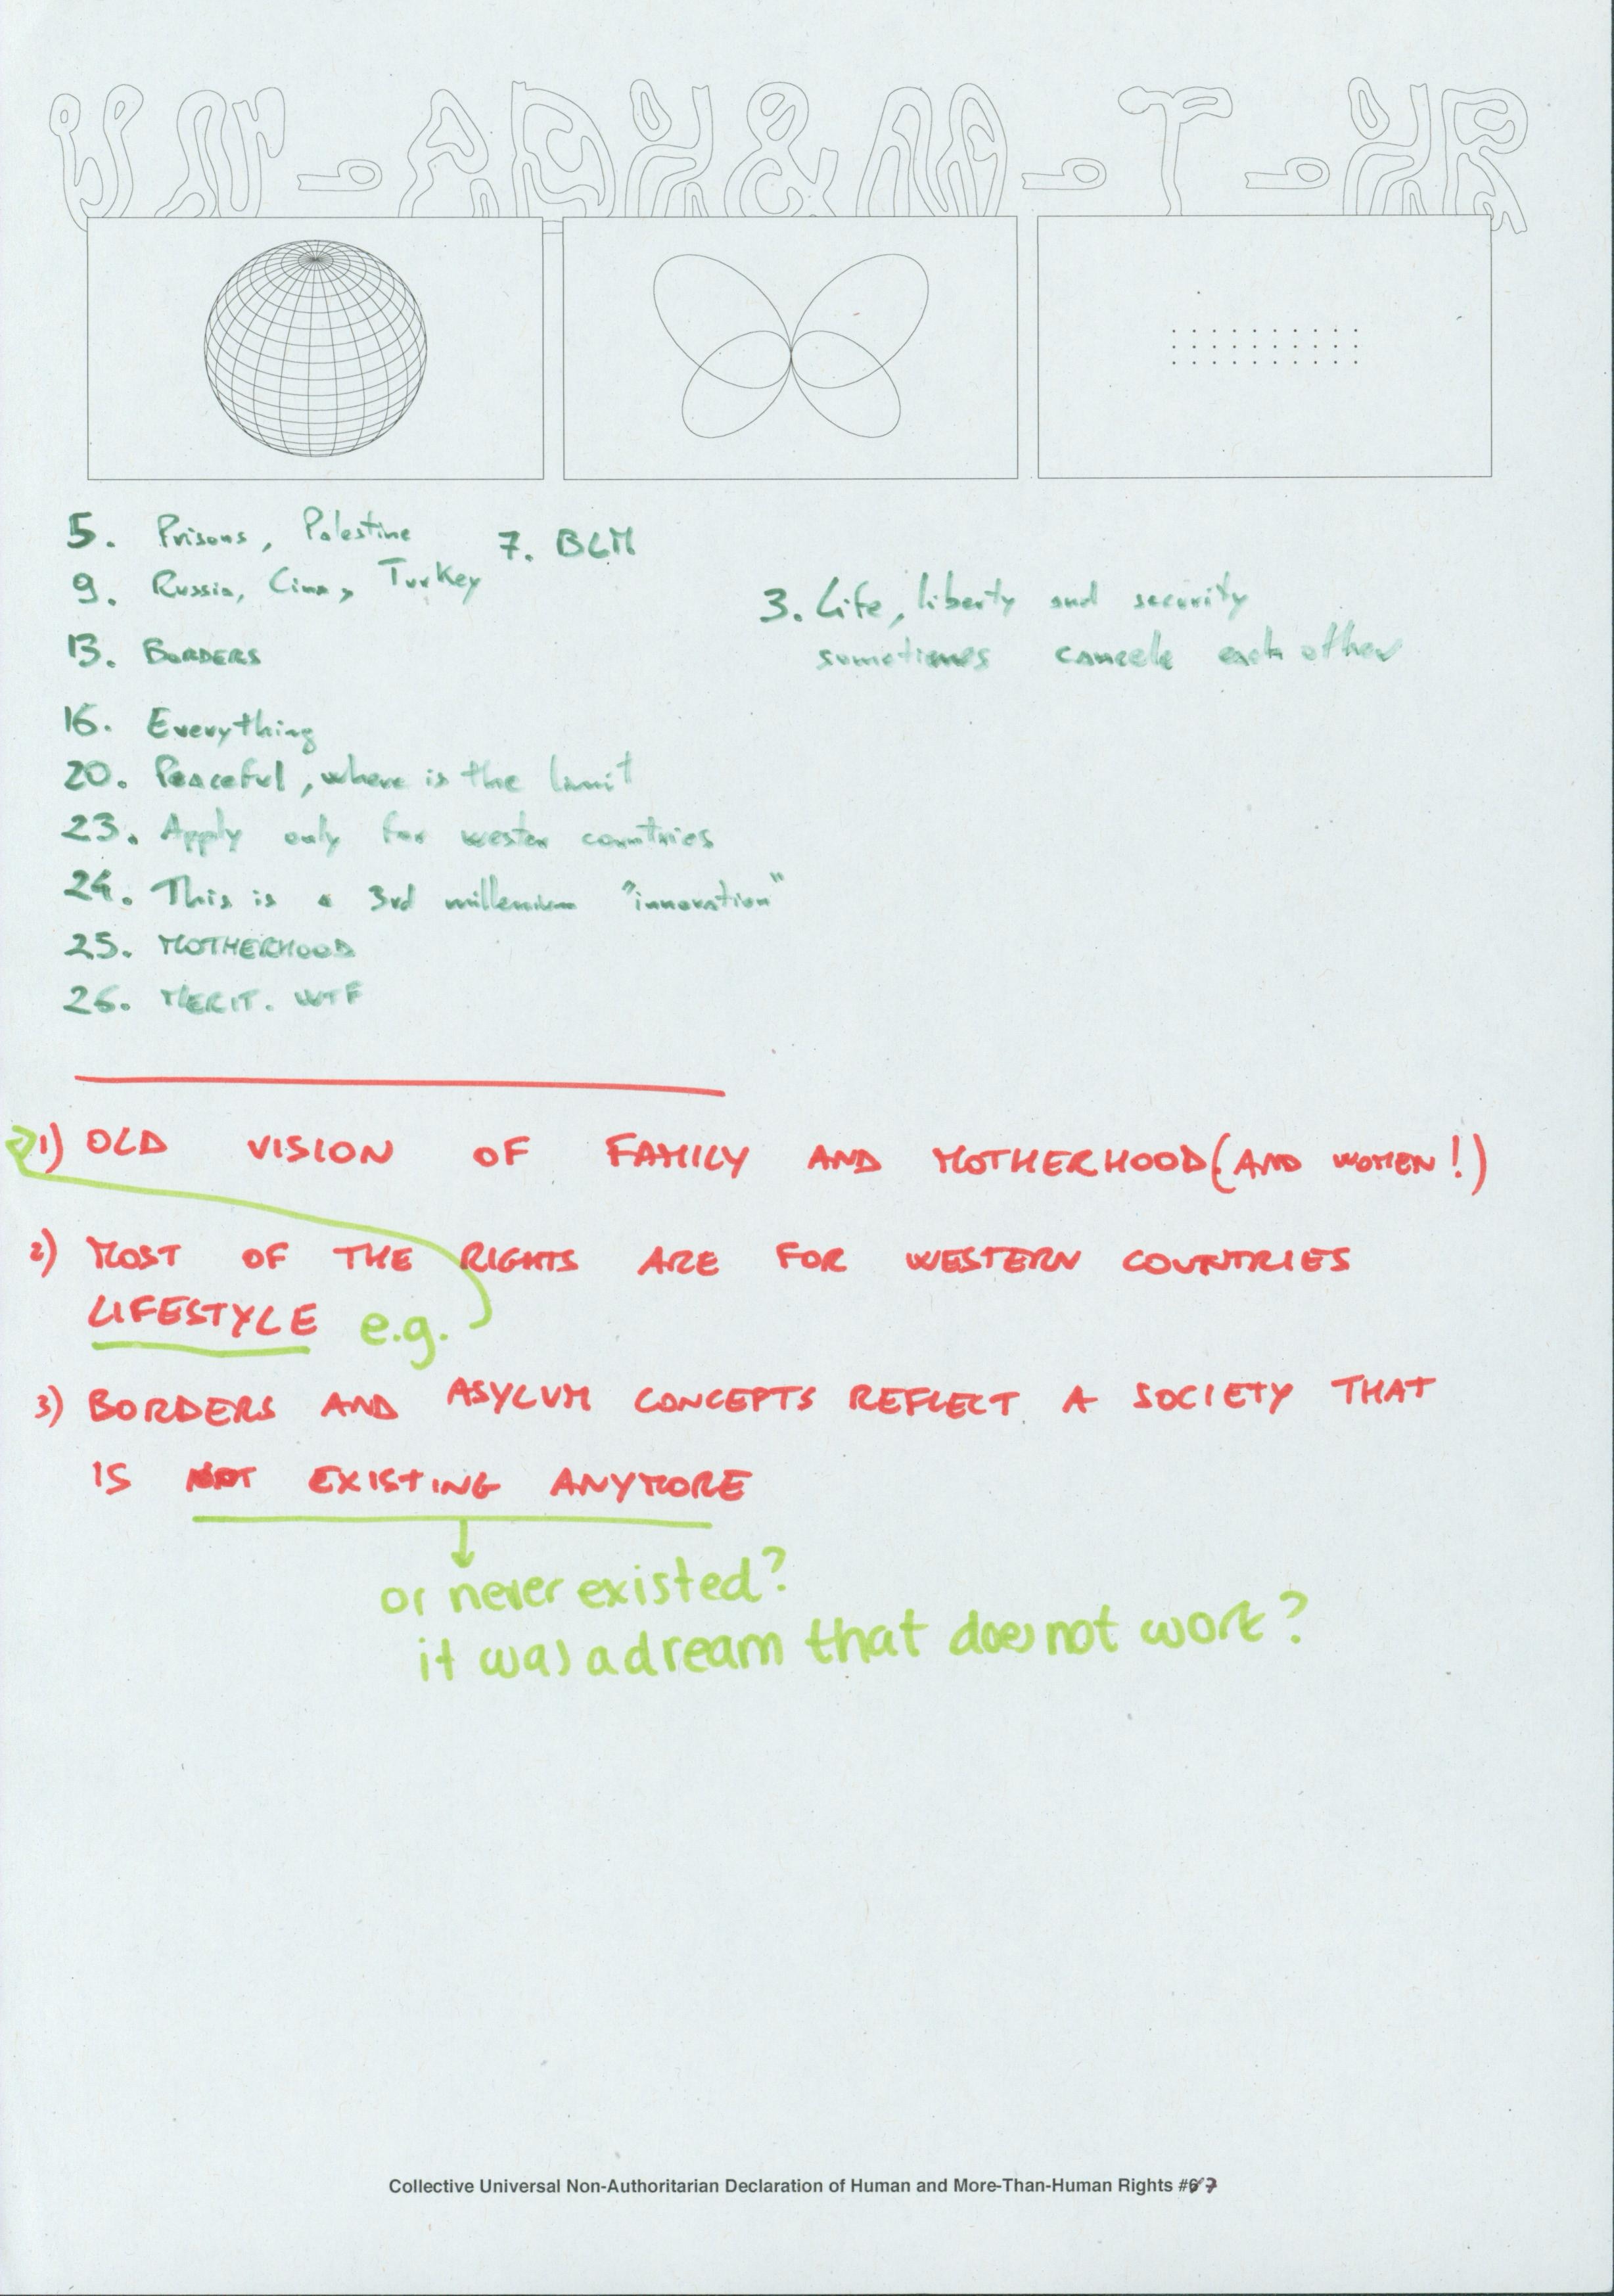 UN-ADH&M-T-HR
5. Prisons, Palestine
7. BLM
9. Russia, Cina, Turkey
3. Life, liberty and security
sometimes cancele each other
13. BORDERS
16. Everything
20. Peaceful, where is the limit
23. Apply only for wester countries
24. This is a 3rd millenium "innovation"
25. MOTHERHOOD
26. MERIT. WTF
1) OLD VISION OF FAMILY AND MOTHERHOOD (AND WOMEN!)
2) MOST OF THE RIGHTS ARE FOR WESTERN COUNTRIES
LIFESTYLE e.g.
3) BORDERS AND ASYLUM CONCEPTS REFLECT A SOCIETY THAT
IS NOT EXISTING ANYMORE
or never existed?
it was a dream that does not work?
Collective Universal Non-Authoritarian Declaration of Human and More-Than-Human Rights #7